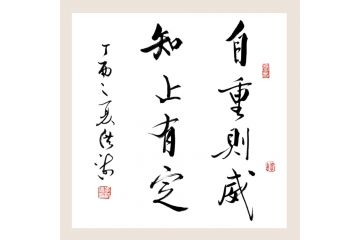 自重则威
知止有定
丁酉之夏